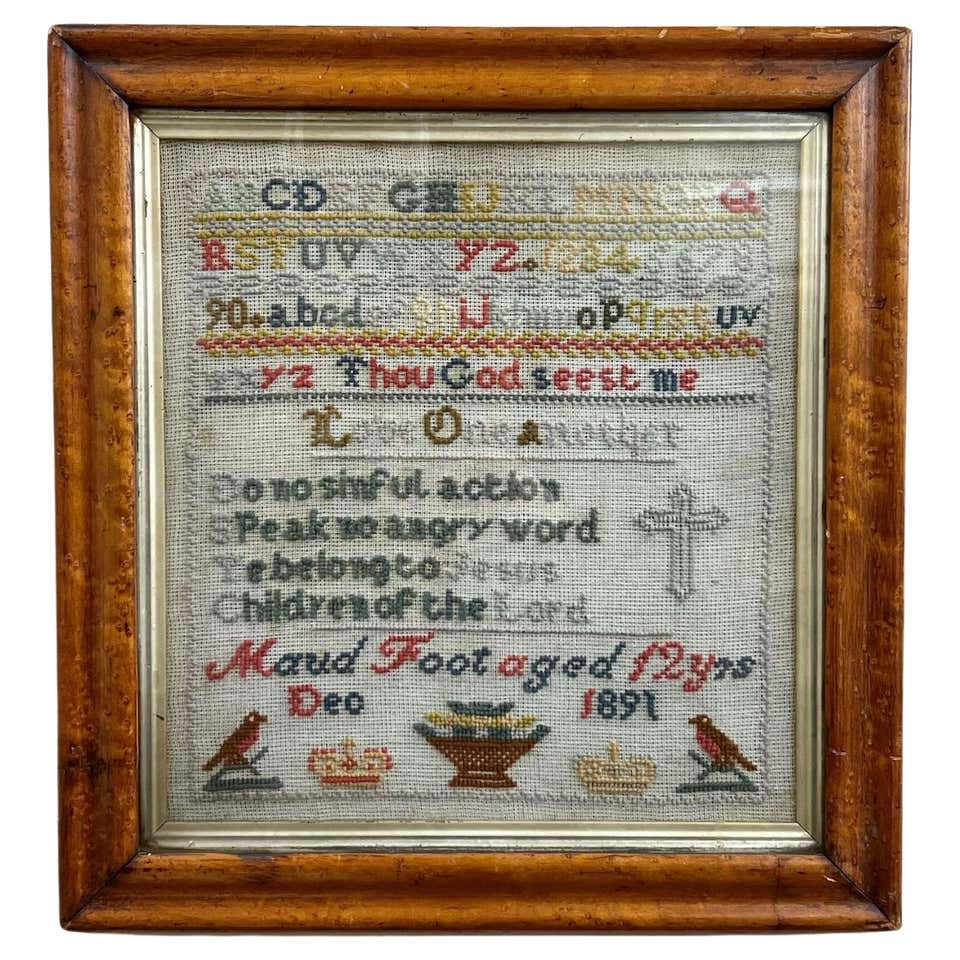 ABCDEFGHIJKLMNOPQ
RSTUVWXYZ.12345678
90.abcdefghijklmnopqrstuv
wxyz Thou God seest me
Love One another
Do no sinful action
SPeak no angry word
Ye belong to Jesus
Children of the Lord
Maud Foot aged 12 yrs
Dec 1891